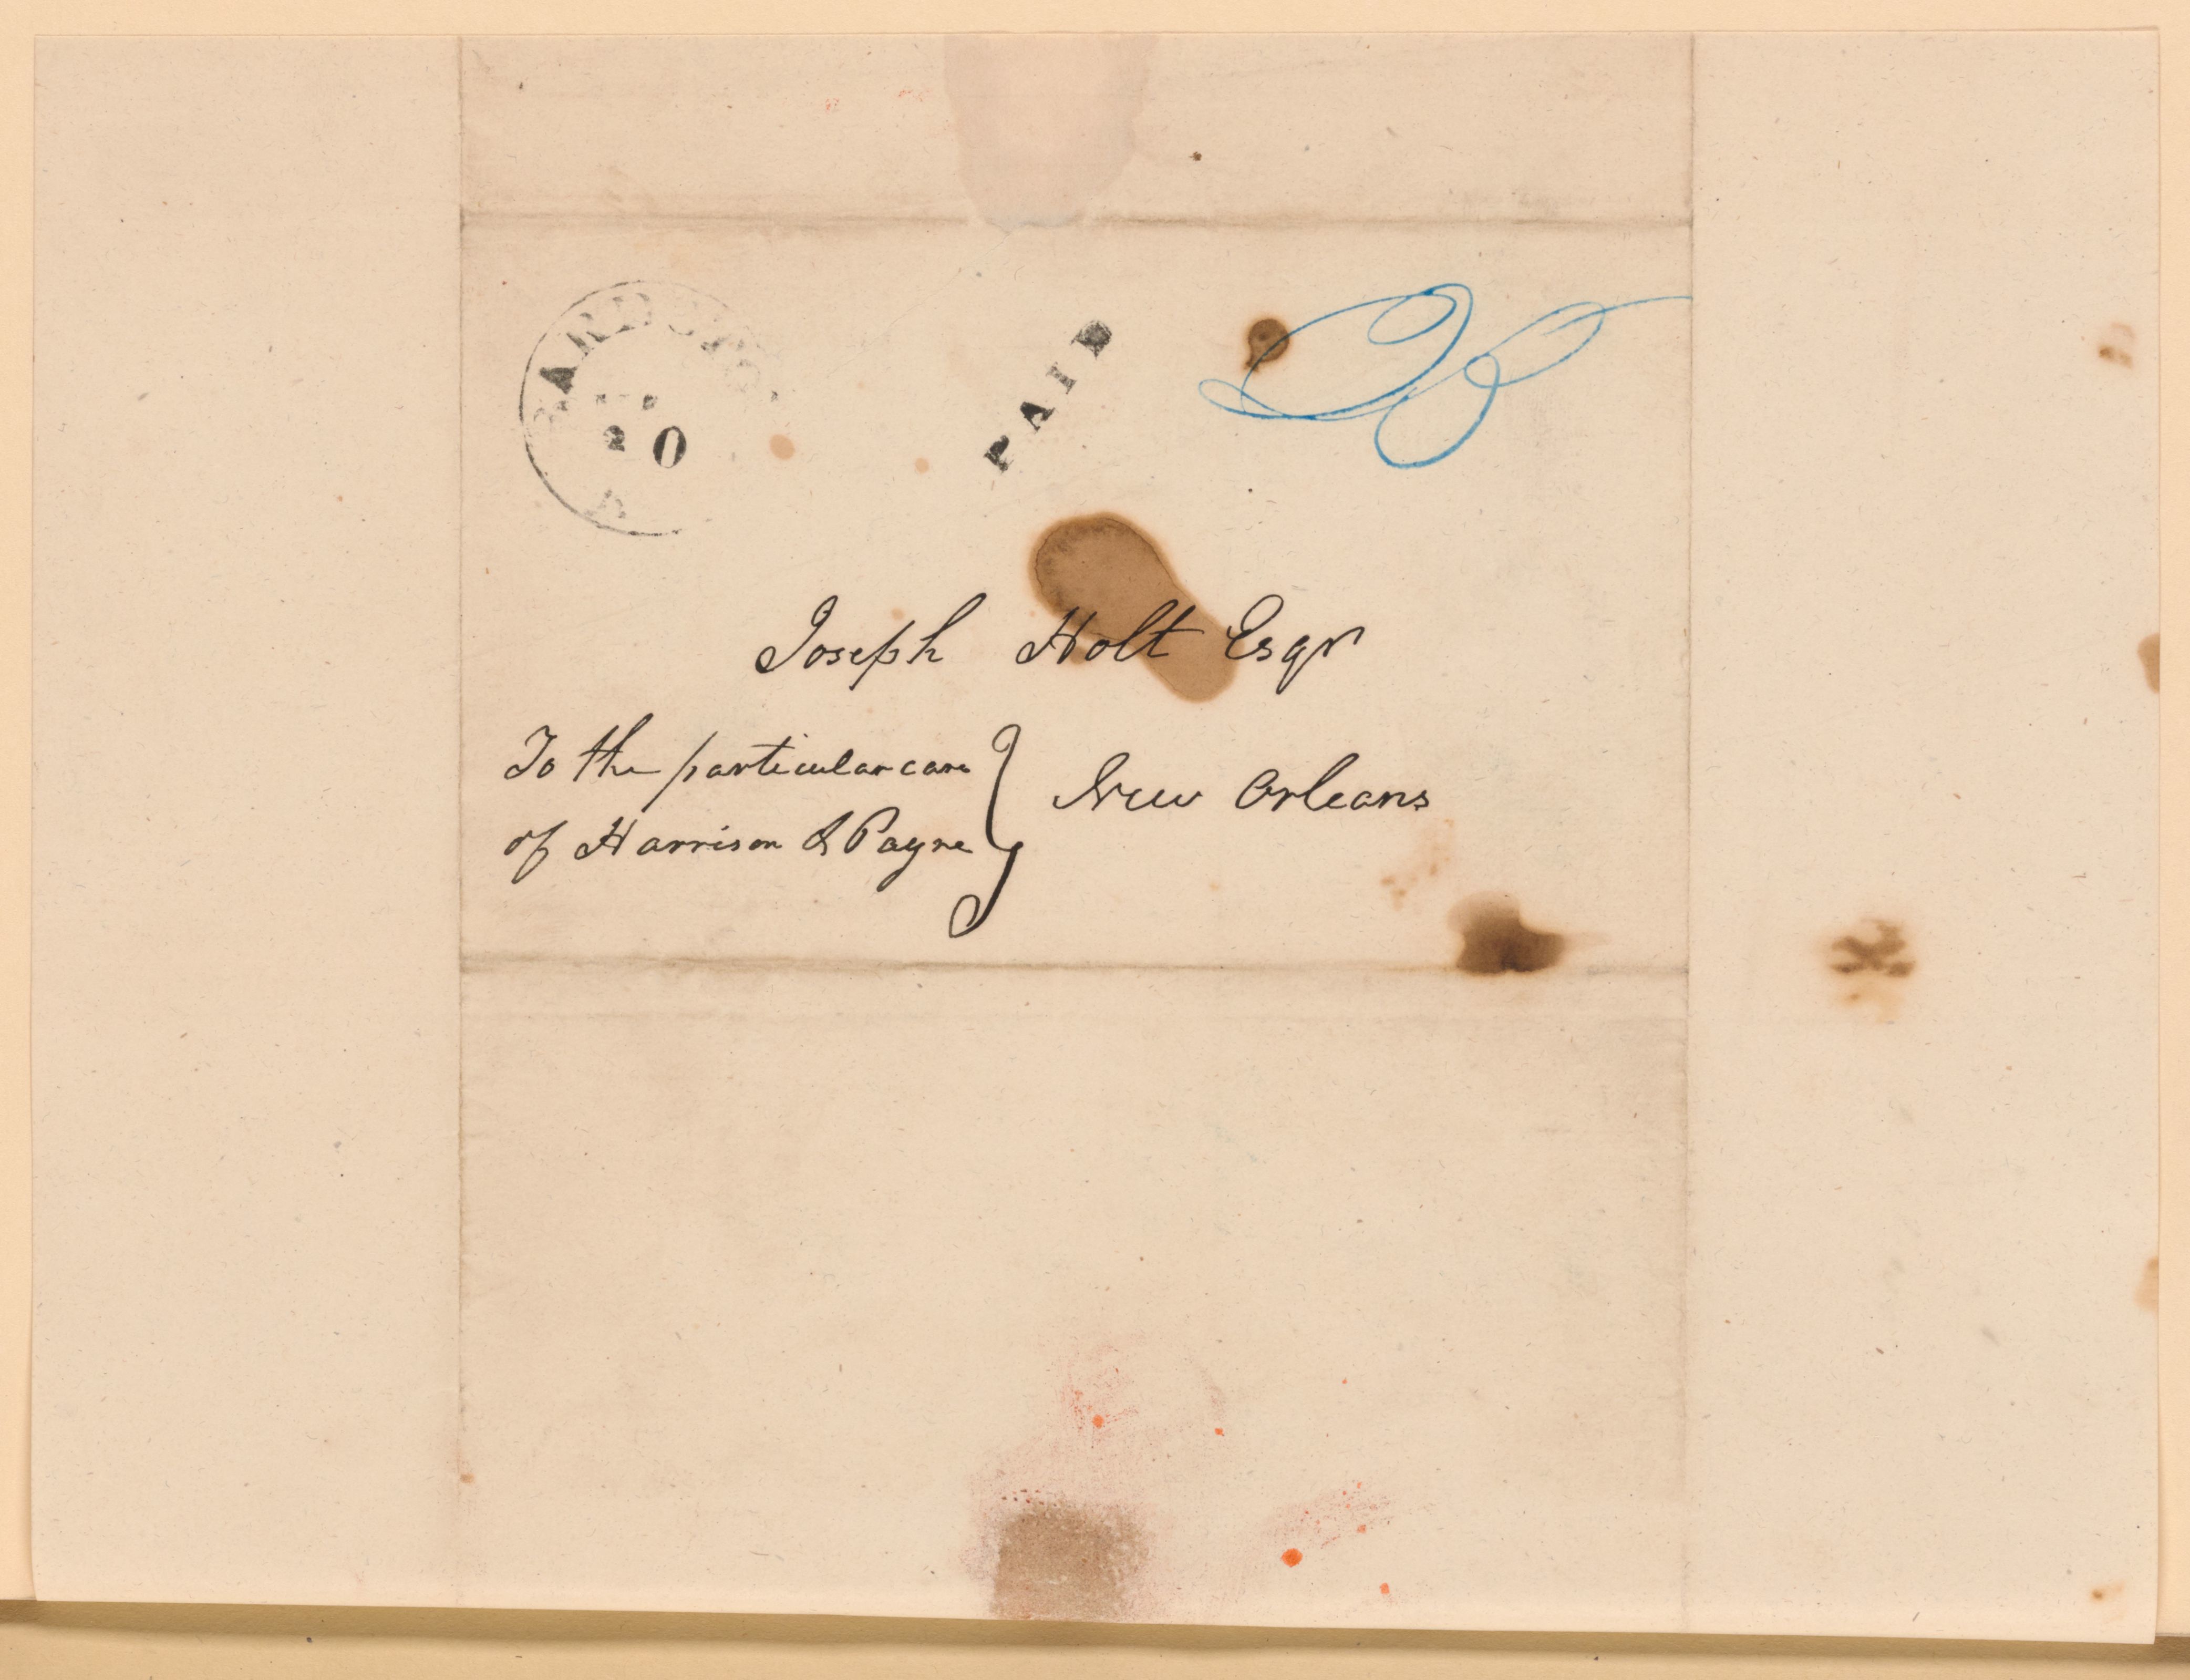 20
PAID
Joseph Holt Esqr
To the particular care
of Harrison & Payne
New Orleans